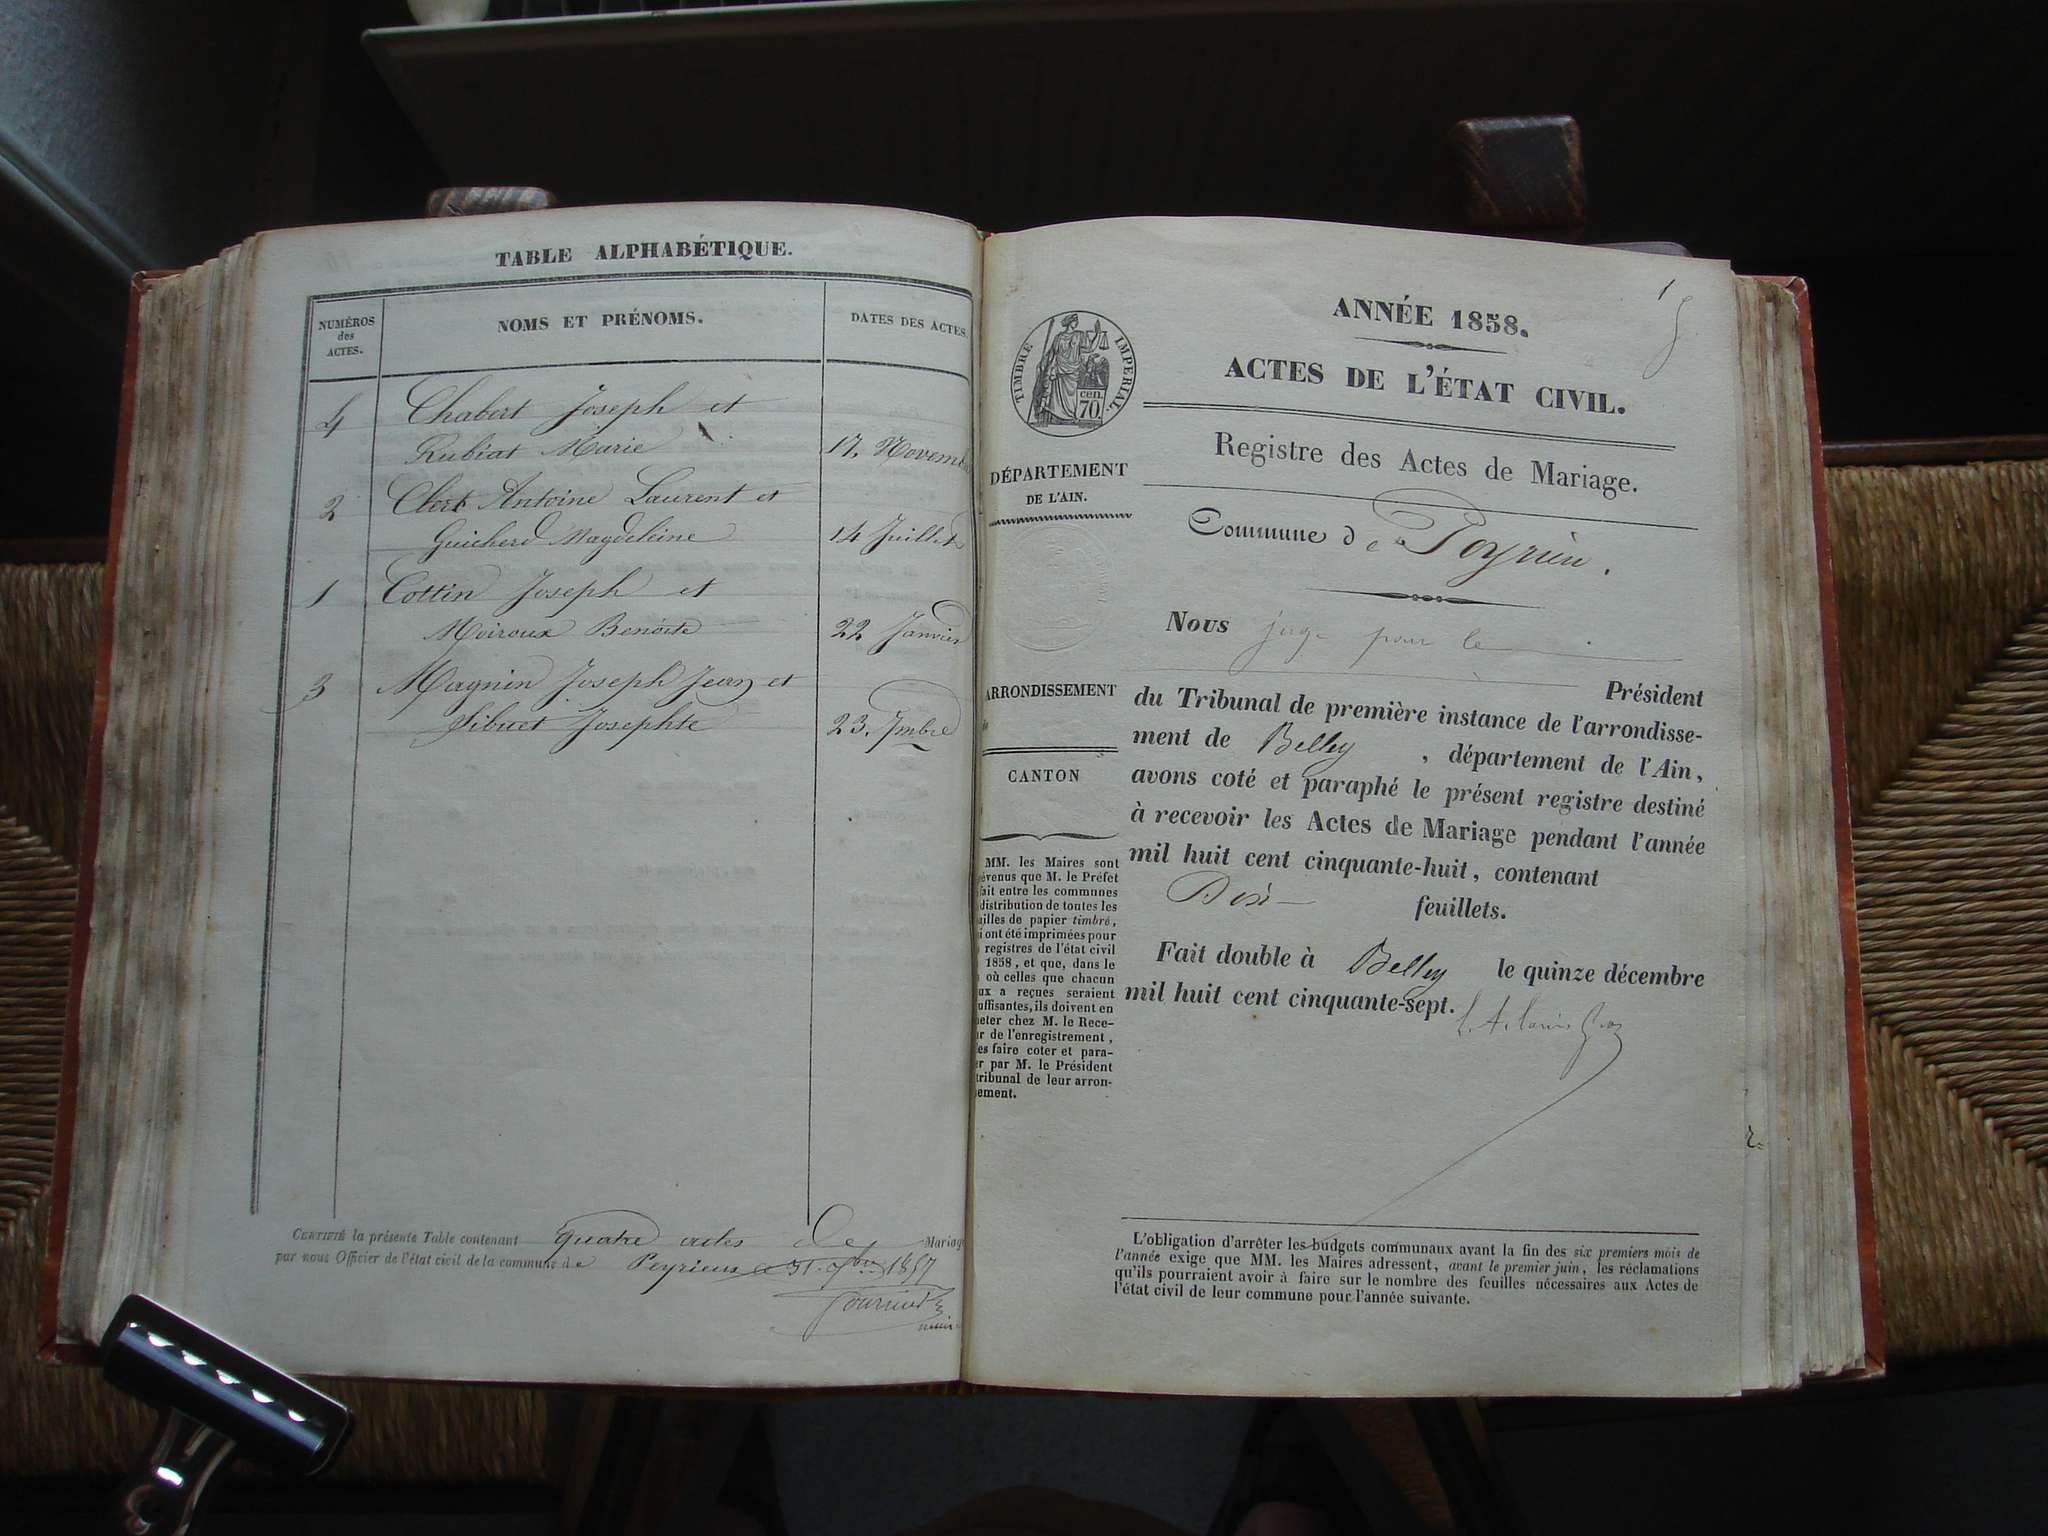 TABLE ALPHABÉTIQUE.
NUMÉROS
des
ACTES.
NOMS ET PRÉNOMS.
DATES DES ACTES
4
Chabert Joseph et
Rubiat Marie
17, Novem
2
Clert Antoine Laurent et
Guicherd Magdeleine
14 Juillet
1
Cottin Joseph et
Moiroux Benoite
22 Janvier
3
Magnin Joseph Jean et
Sibuet Josephte
23. 7mbre
CERTIFIÉ la présente Table contenant quatre actes de Mariage
par nous Officier de l'état civil de la commune de Peyrieu 31. 1857
1
ANNÉE 1858.
ACTES DE L'ÉTAT CIVIL.
TIMBRE IMPÉRIAL.
cen.
70.
Registre des Actes de Mariage.
DÉPARTEMENT
DE L'AIN.
Commune de Peyrieu.
Nous juge pour le
ARRONDISSEMENT
Président
du Tribunal de première instance de l'arrondisse-
ment de Belley, département de l'Ain,
avons coté et paraphé le présent registre destiné
à recevoir les Actes de Mariage pendant l'année
mil huit cent cinquante-huit, contenant
Dix feuillets.
Fait double à Belley le quinze décembre
mil huit cent cinquante-sept.
CANTON
MM. les Maires sont
évenus que M. le Préfet
fait entre les communes
distribution de toutes les
uilles de papier timbré,
i ont été imprimées pour
registres de l'état civil
1858, et que, dans le
où celles que chacun
ux a reçues seraient
uffisantes, ils doivent en
heter chez M. le Rece-
ur de l'enregistrement,
les faire coter et para-
er par M. le Président
tribunal de leur arron-
ement.
L'obligation d'arrêter les budgets communaux avant la fin des six premiers mois de
l'année exige que MM. les Maires adressent, avant le premier juin, les réclamations
qu'ils pourraient avoir à faire sur le nombre des feuilles nécessaires aux Actes de
l'état civil de leur commune pour l'année suivante.